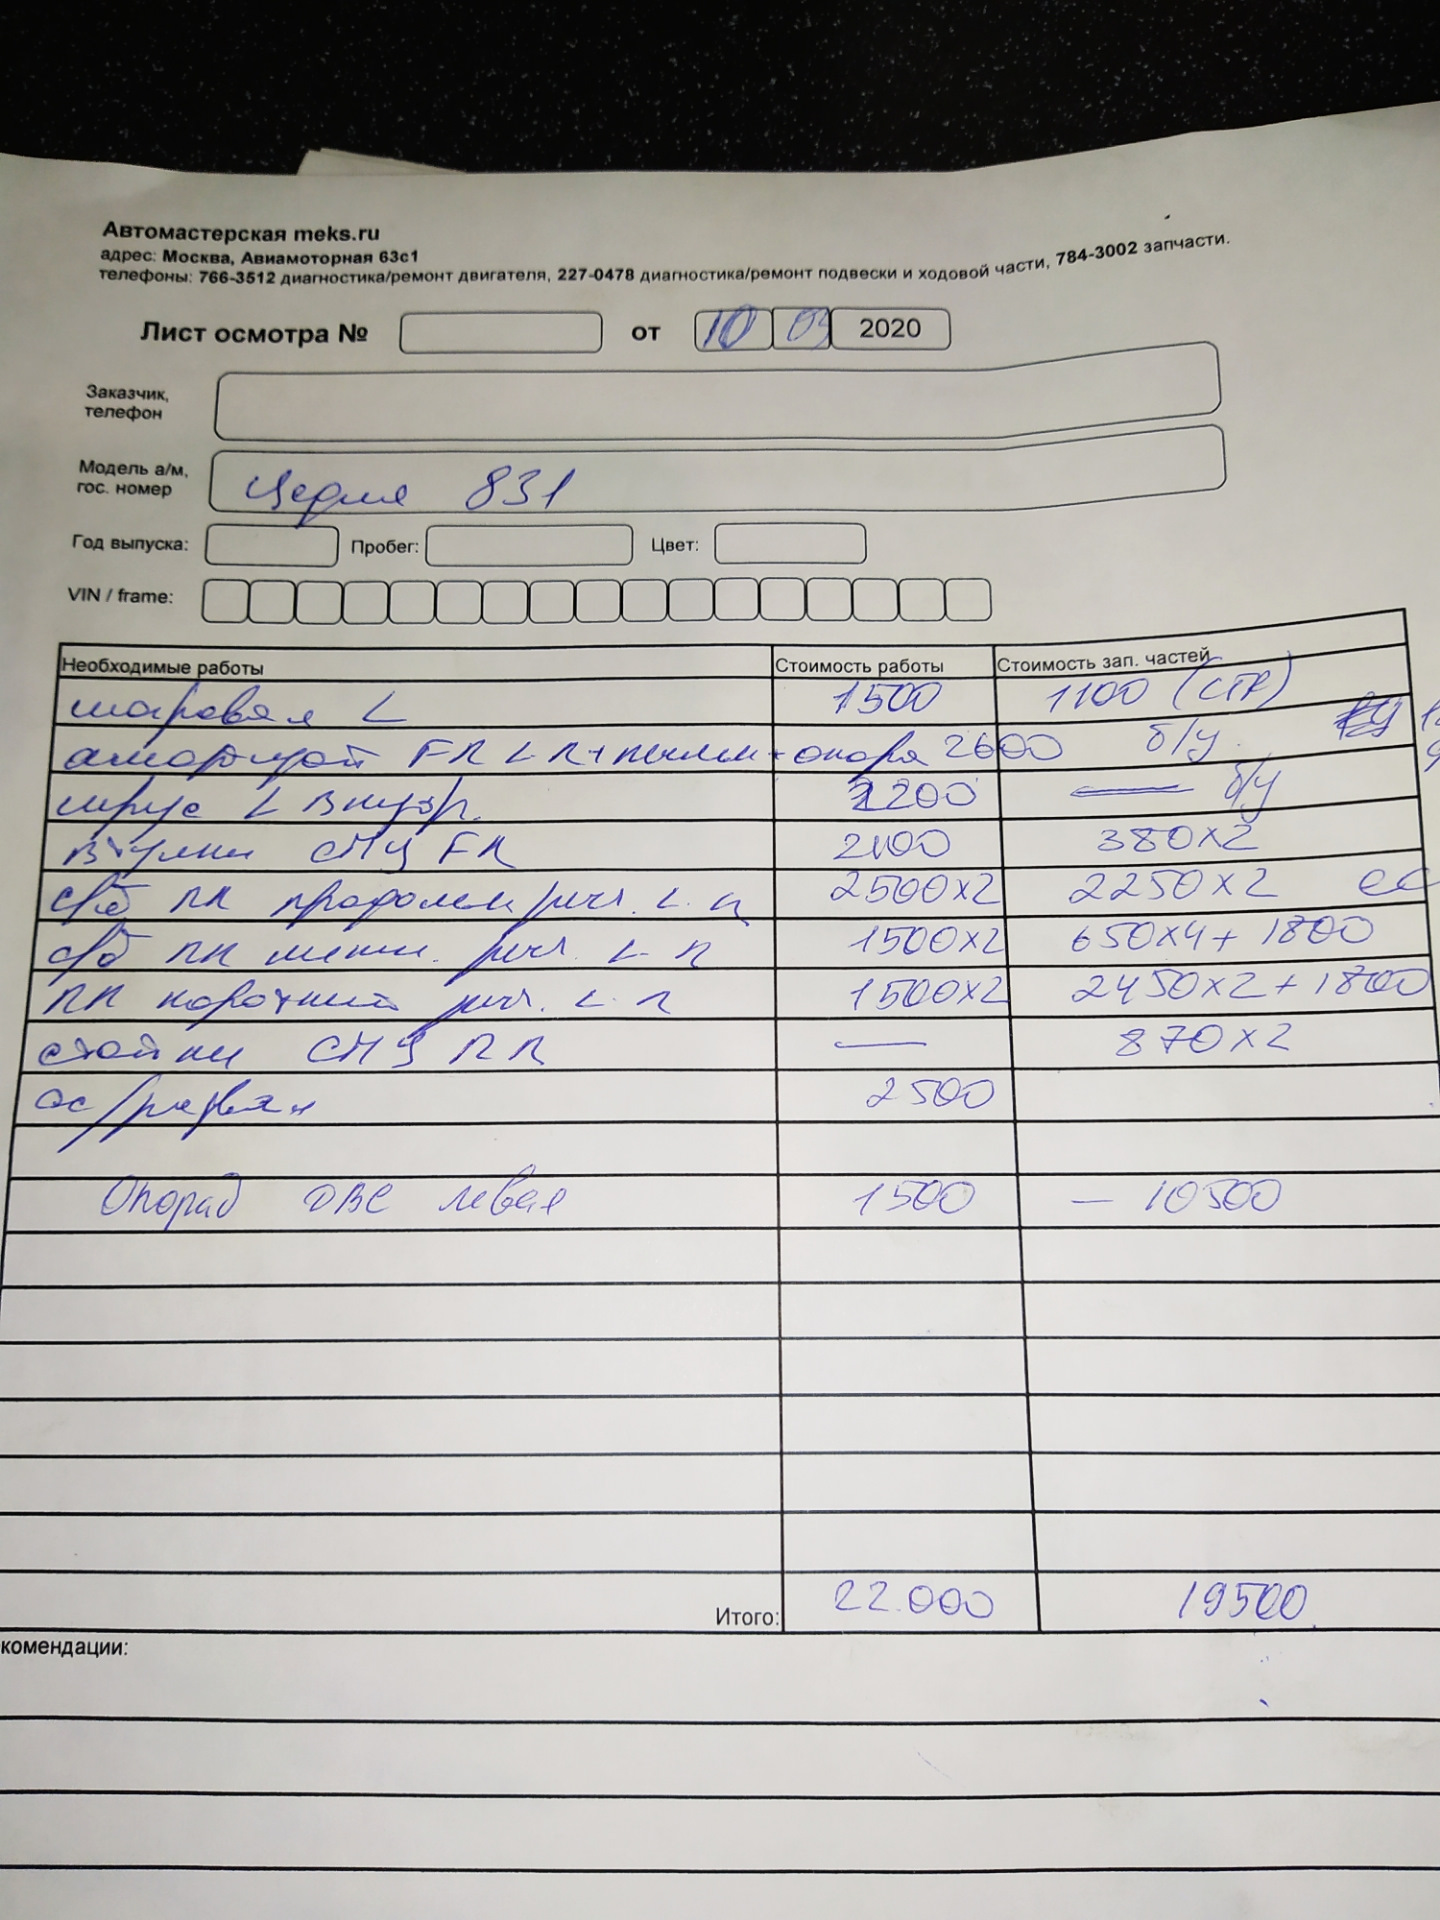 Автомастерская meks.ru
адрес: Москва, Авиамоторная 63с1
телефоны: 766-3512 диагностика/ремонт двигателя, 227-0478 диагностика/ремонт подвески и ходовой части, 784-3002 запчасти.
Лист осмотра № от 10 09 2020
Заказчик,
телефон
Модель а/м,
гос. номер
831
Год выпуска: Пробег: Цвет:
VIN / frame:
Необходимые работы Стоимость работы Стоимость зап. частей
шаровая L 1500 1100 (CTR)
FR L R + + опора 2600 б/у
шрус L внутр. 2200 — б/у
втулки СПУ FR 2100 380x2
с/б RR рыч. L. R 2500x2 2250x2
с/б RR рыч. L R 1500x2 650x4 + 1800
RR короткий рыч. L. R 1500x2 2450x2 + 1800
стойки СПУ RR — 870x2
сх/развал 2500
ДВС левая 1500 — 10500
Итого: 22.000 19500
комендации: